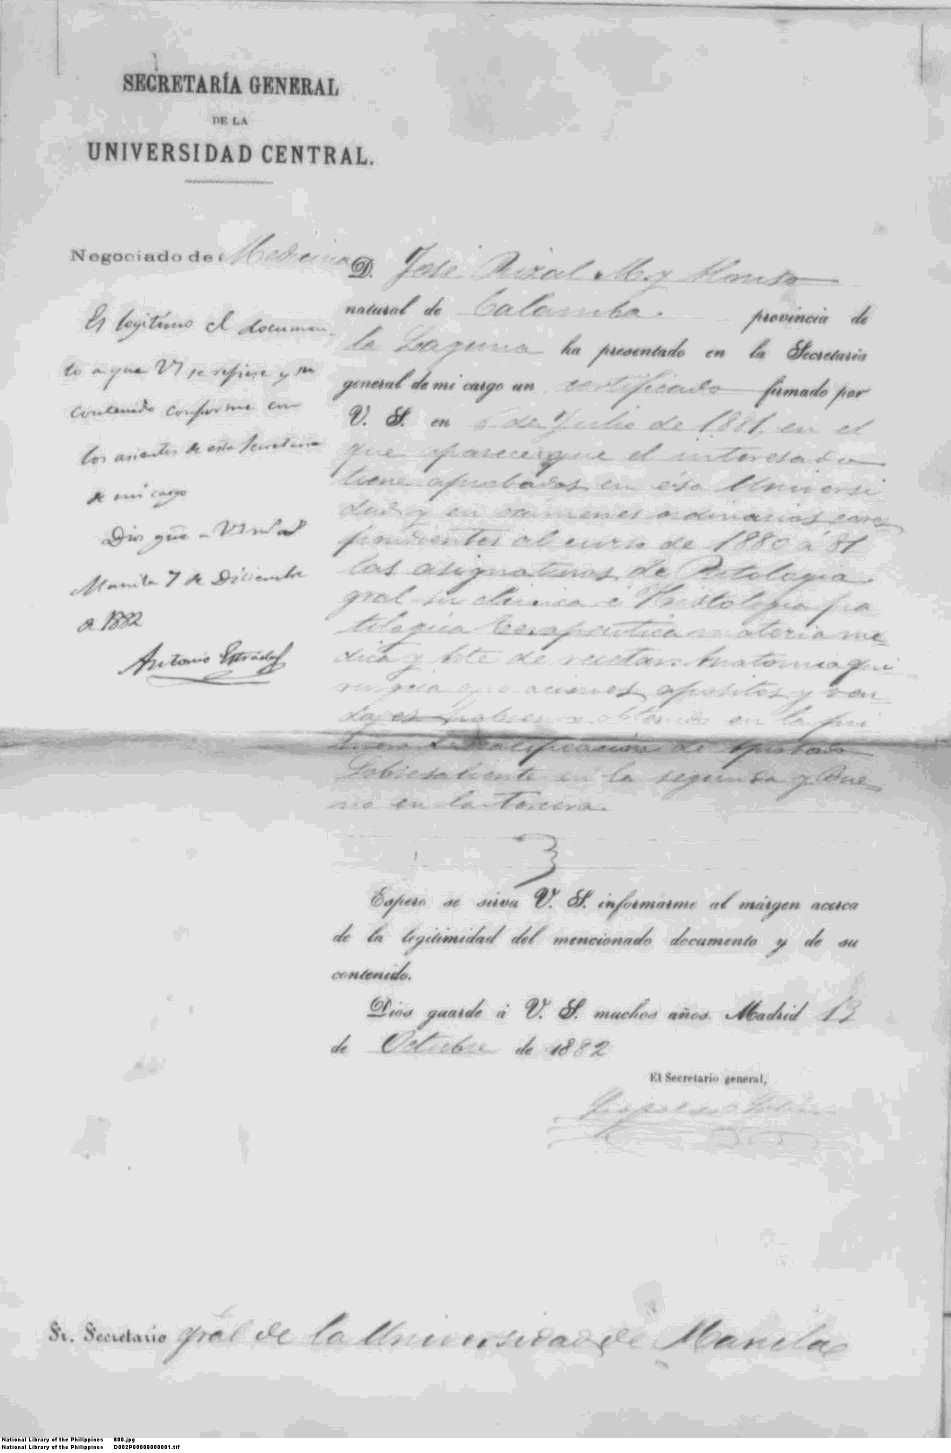 SECRETARÍA GENERAL
DE LA
UNIVERSIDAD CENTRAL.
Negociado de Medicina
Es legítimo el documen
to a que VI se refiere y su
contenido conforme con
los asientos de esta Secretaria
de mi cargo
Dios gue a VI m a
Manila 7 de Diciembre
de 1882
Antonio Estrada
D. José Rizal M. y Alonso
natural de Calamba. provincia de
la Laguna ha presentado en la Secretaria
general de mi cargo un certificado firmado por
V. S. en 6 de Julio de 1881, en el
que aparece que el interesado
tiene aprobadas en ésa Universi
dad y en exámenes ordinarios corres
pondientes al curso de 1880 á 81
las asignaturas de Patología
gral su clinica é Histología pa
tologica Terapeutica materia me
dica y Arte de recetar. Anatomia qui
rurgica operaciones, apositos y ven
dajes habiendo obtenido en la pri
mera la calificación de Aprobado
Sobresaliente en la segunda y Bue
no en la tercera.
Espero se sirva V. S. informarme al márgen acerca
de la legitimidad del mencionado documento y de su
contenido.
Dios guarde á V. S. muchos años. Madrid 13
de Octubre de 1882
El Secretario general,
Sr. Secretario gral de la Universidad de Manila
National Library of the Philippines 800.jpg
National Library of the Philippines D002P00000000001.tif